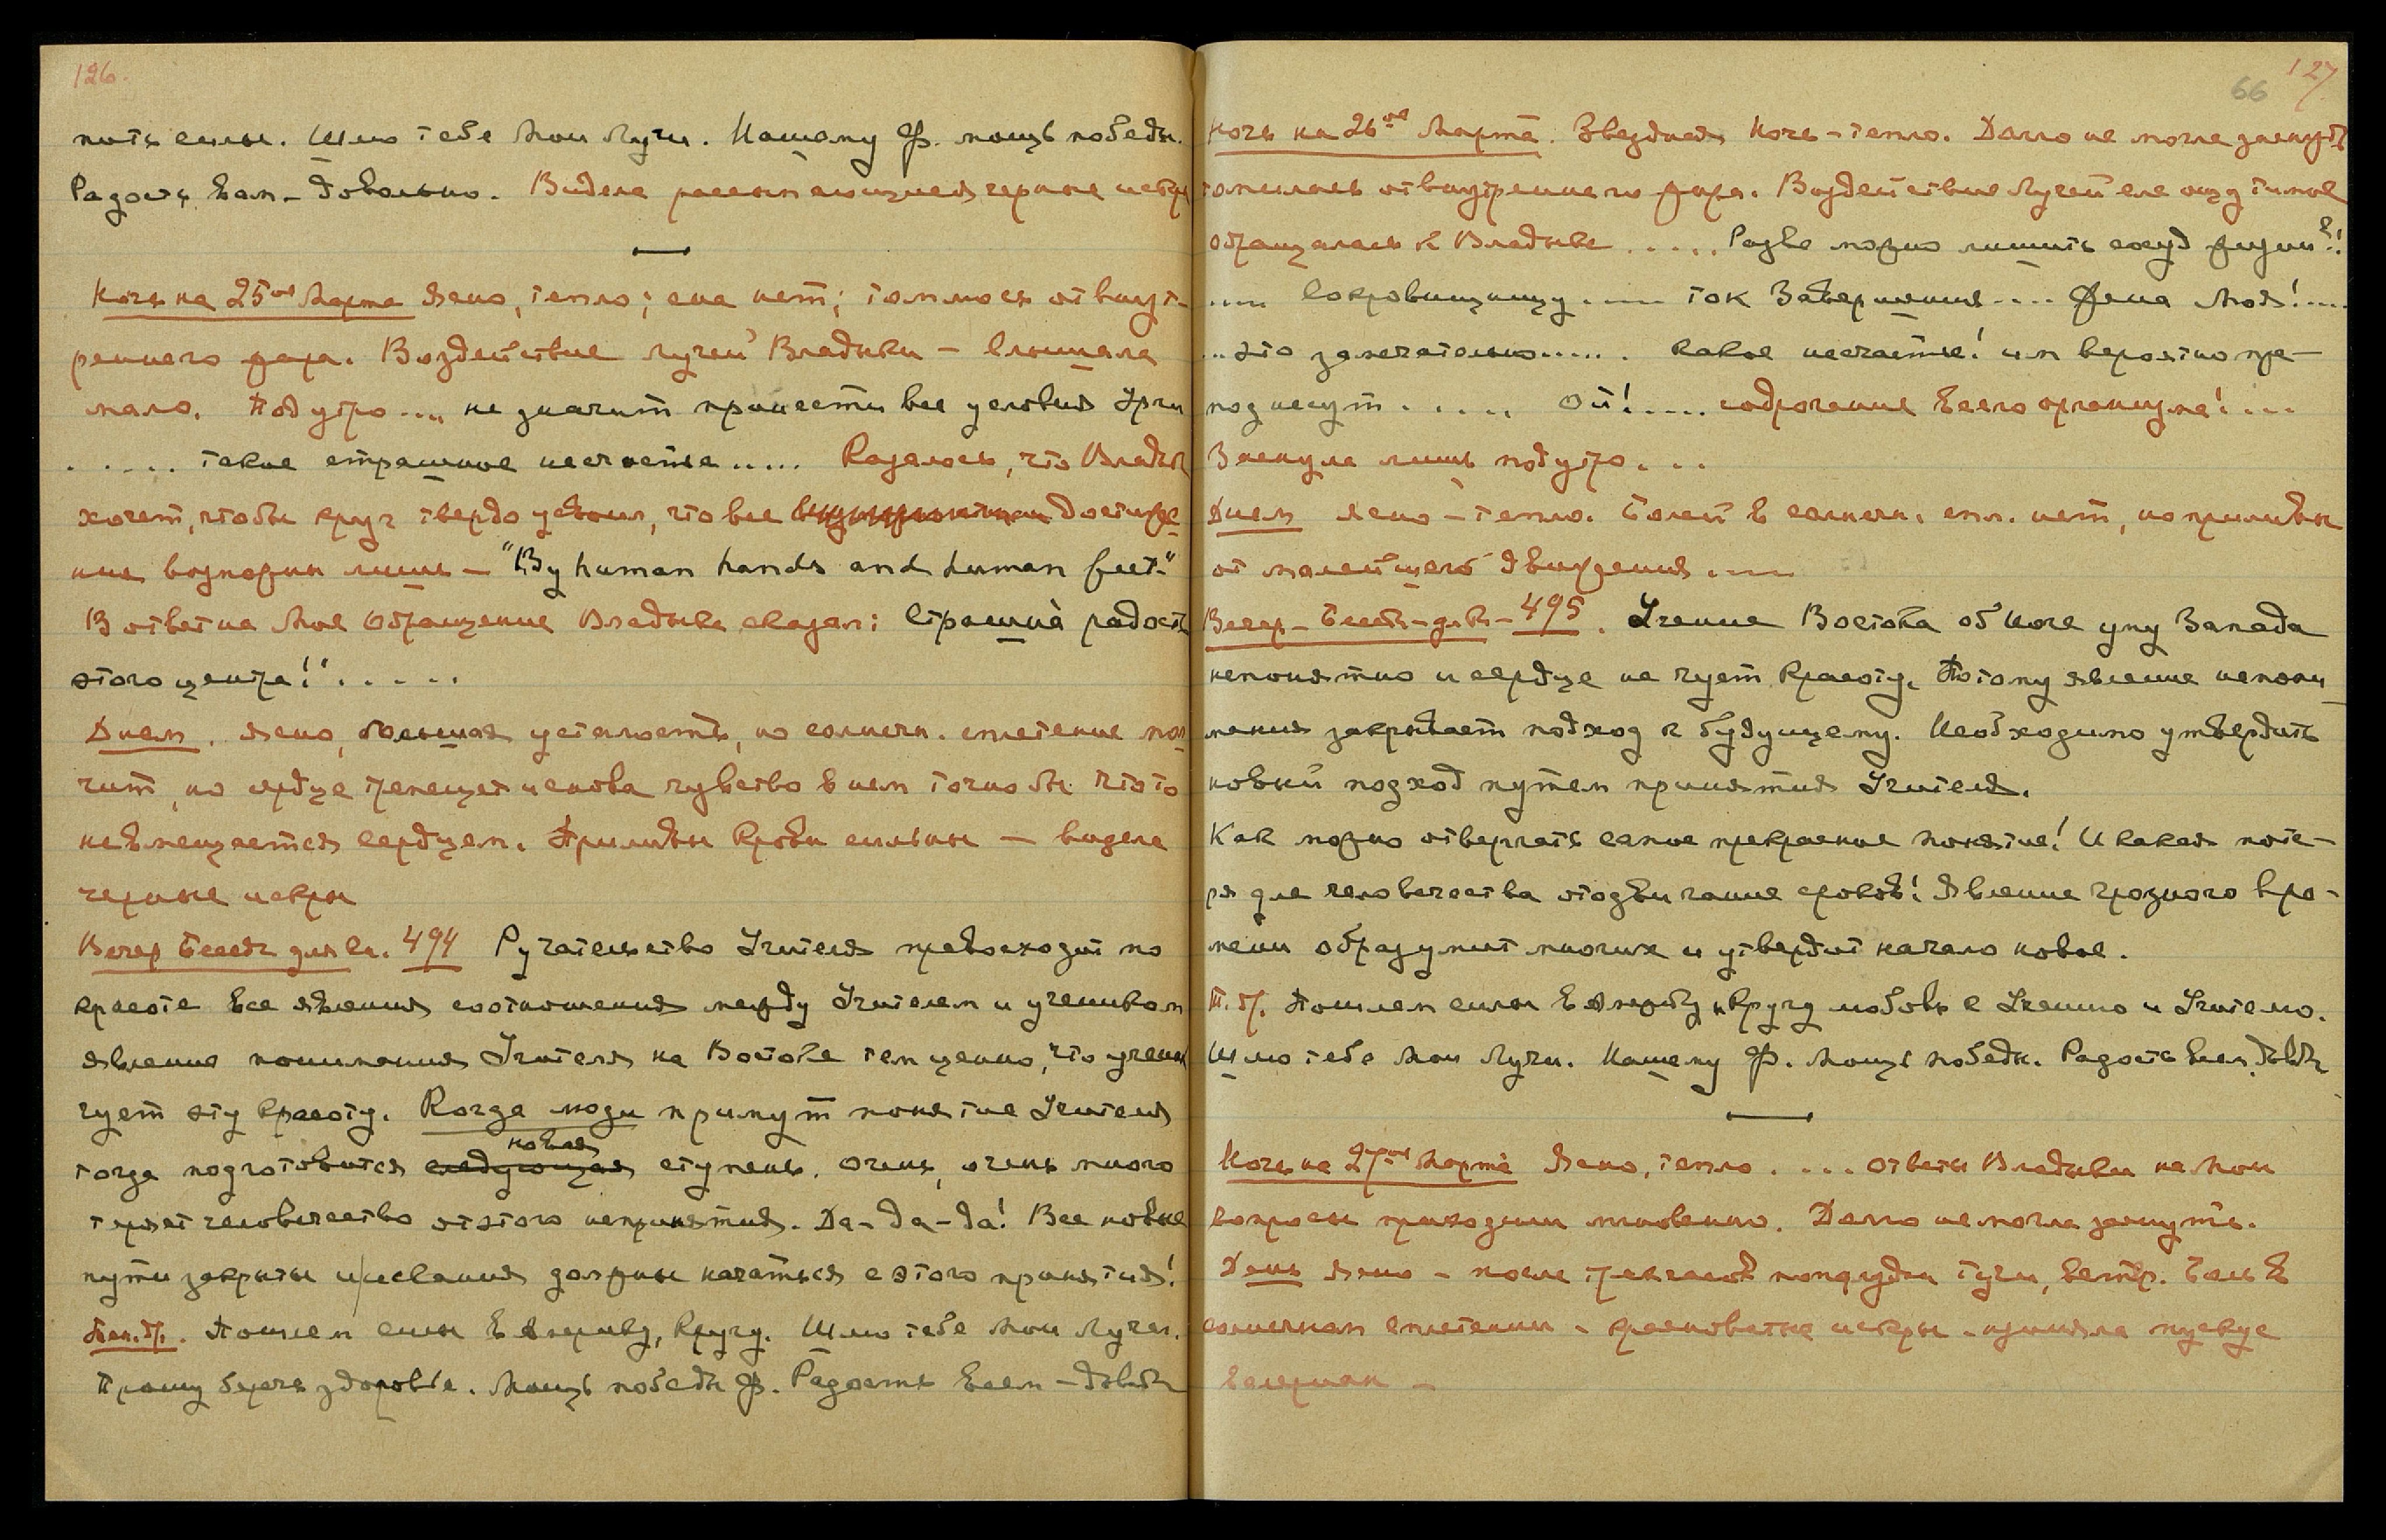 126.
пить силы. Шлю тебе Мои Лучи. Нашему Ф. мощь победы.
Радость Вам – довольно. Видела рассыпающиеся черные искры
Ночь на 25ое Марта Ясно, тепло; сна нет; томилась от внут-
реннего жара. Воздействие лучей Владыки – слышала
мало. Под утро .... не значит принести все условия Урги
..... такое страшное несчастье ..... Казалось, что Владыка
хочет, чтобы круг твердо усвоил, что все достиже-
ния возможны лишь – "By human hands and human feet."
В ответ на Мое Обращение Владыка сказал: Страшна радость
этого центра!" .....
Днем. Ясно, большая усталость, но солнечн. сплетение мол-
чит, но сердце трепещет и снова чувство в нем точно бы что то
не вмещается сердцем. Приливы крови сильны – видела
черные искры
Вечер Беседа для Вл. 494 Ручательство Учителя превосходит по
красоте все явления соотношения между Учителем и учеником
явление понимания Учителя на Востоке тем ценно, что ученик
чует эту красоту. Когда люди примут понятие Учителя
новая
тогда подготовится следующая ступень. Очень, очень много
теряет человечество от этого непринятия. Да – да – да! Все новые
пути закрыты и искания должны начаться с этого принятия!
Поп. бл. Пошлем силы в Америку, Кругу. Шлю тебе Мои Лучи.
Прошу беречь здоровье. Мощь победы Ф. Радость Всем – довольно
127
66
Ночь на 26ое Марта. Звездная Ночь – тепло. Долго не могла заснуть
томилась от внутреннего жара. Воздействие Лучей еле ощутимое
обращалась к Владыке ..... Разве можно лишить сосуд жизни?!
.... Сокровищницу .... ток Завершения .... Жена Моя! ....
.. это замечательно ..... какое несчастье! им вероятно пре-
поднесут ..... Ой! .... содрогание всего организма! ...
Заснула лишь под утро. ..
Днем ясно – тепло. Болей в солнечн. спл. нет, но приливы
от малейшего движения ....
Вечер – Беседа – для Вл. – 495. Учение Востока об Иоге уму Запада
непонятно и сердце не чует красоту. Потому явление непони-
мания закрывает подход к будущему. Необходимо утвердить
новый подход путем принятия Учителя.
Как можно отвергать самое прекрасное понятие! И какая поте-
ря для человечества отодвигание сроков! Явление грозного вре-
мени образумит многих и утвердит начало новое.
П. бл. Пошлем силы в Америку и Кругу любовь к Учению и Учителю.
Шлю тебе Мои Лучи. Нашему Ф. Мощь победы. Радость Всем, довольно
Ночь на 27ое Марта Ясно, тепло .... Ответы Владыки на Мои
вопросы приходили мгновенно. Долго не могла заснуть.
День Ясно – после трех часов пополудни тучи, ветер. Боль в
солнечном сплетении – красноватые искры – приняла мускус
валериан –